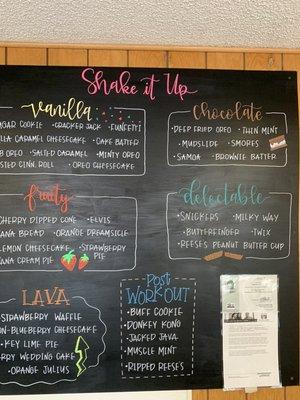 Shake it Up
vanilla
COOKIE · CRACKER JACK · FUNFETTI
CARAMEL CHEESECAKE · CAKE BATTER
OREO · SALTED CARAMEL · MINTY OREO
CINN. ROLL · OREO CHEESECAKE
Chocolate
· DEEP FRIED OREO · THIN MINT
· MUDSLIDE · SMORES
· SAMOA · BROWNIE BATTER
fruity
CHERRY DIPPED CONE · ELVIS
BREAD · ORANGE DREAMSICLE
LEMON CHEESECAKE · STRAWBERRY
CREAM PIE PIE
delectable
· SNICKERS · MILKY WAY
· BUTTERFINGER · TWIX
· REESES PEANUT BUTTER CUP
LAVA
STRAWBERRY WAFFLE
BLUEBERRY CHEESECAKE
· KEY LIME PIE
WEDDING CAKE
· ORANGE JULIUS
POST
WORKOUT
· BUFF COOKIE
· DONKEY KONG
· JACKED JAVA
· MUSCLE MINT
· RIPPED REESES